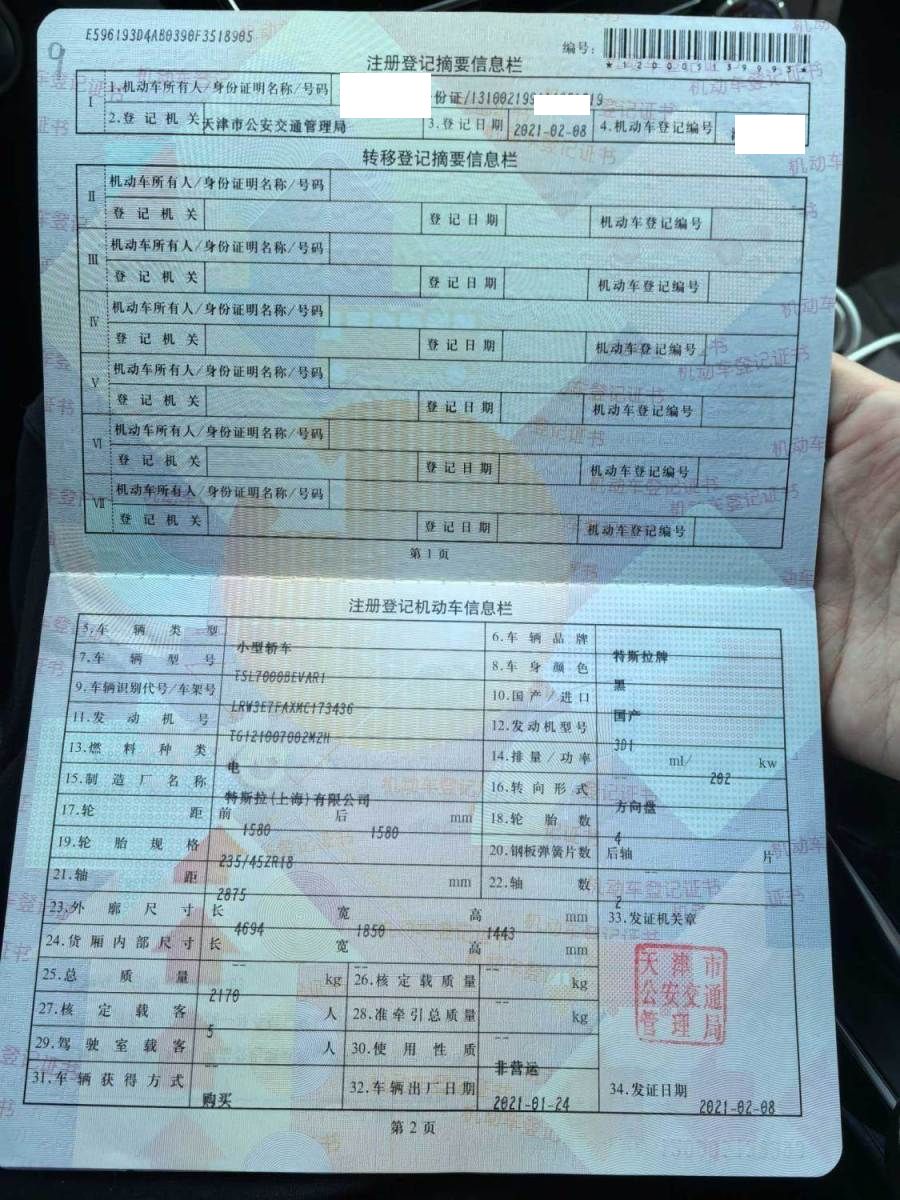 E596193D4AB0390F3518905
编号:
*120005139993*
注册登记摘要信息栏
Ⅰ 1.机动车所有人/身份证明名称/号码 份证/131002199 19
2.登记机关 天津市公安交通管理局 3.登记日期 2021-02-08 4.机动车登记编号
转移登记摘要信息栏
Ⅱ 机动车所有人/身份证明名称/号码
登记机关 登记日期 机动车登记编号
Ⅲ 机动车所有人/身份证明名称/号码
登记机关 登记日期 机动车登记编号
Ⅳ 机动车所有人/身份证明名称/号码
登记机关 登记日期 机动车登记编号
Ⅴ 机动车所有人/身份证明名称/号码
登记机关 登记日期 机动车登记编号
Ⅵ 机动车所有人/身份证明名称/号码
登记机关 登记日期 机动车登记编号
Ⅶ 机动车所有人/身份证明名称/号码
登记机关 登记日期 机动车登记编号
第1页
注册登记机动车信息栏
5.车辆类型 小型轿车 6.车辆品牌 特斯拉牌
7.车辆型号 TSL7000BEVAR1 8.车身颜色 黑
9.车辆识别代号/车架号 LRW3E7FAXMC173436 10.国产/进口 国产
11.发动机号 TG121007002M2H 12.发动机型号 3D1
13.燃料种类 电 14.排量/功率 -- ml/ 202 kw
15.制造厂名称 特斯拉(上海)有限公司 16.转向形式 方向盘
17.轮距 前 1580 后 1580 mm 18.轮胎数 4
19.轮胎规格 235/45ZR18 20.钢板弹簧片数 后轴 -- 片
21.轴距 2875 mm 22.轴数 2
23.外廓尺寸 长 4694 宽 1850 高 1443 mm 33.发证机关章
24.货厢内部尺寸 长 -- 宽 -- 高 -- mm
天津市
公安交通
管理局
25.总质量 2170 kg 26.核定载质量 -- kg
27.核定载客 5 人 28.准牵引总质量 -- kg
29.驾驶室载客 -- 人 30.使用性质 非营运
31.车辆获得方式 购买 32.车辆出厂日期 2021-01-24 34.发证日期 2021-02-08
第2页